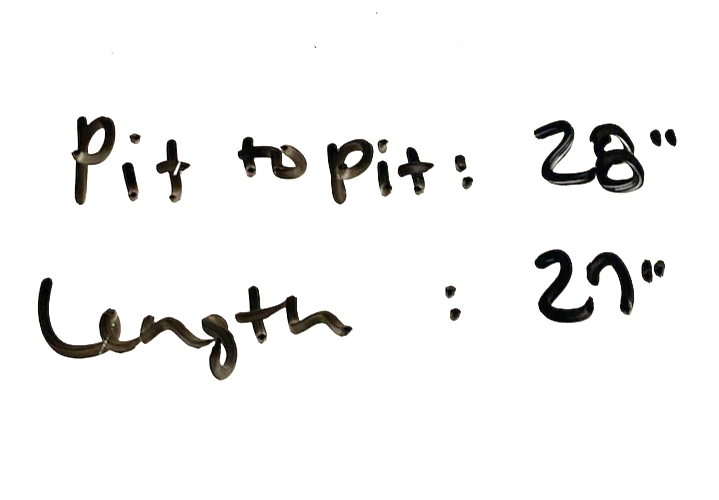 Pit to Pit: 28"
Length : 27"